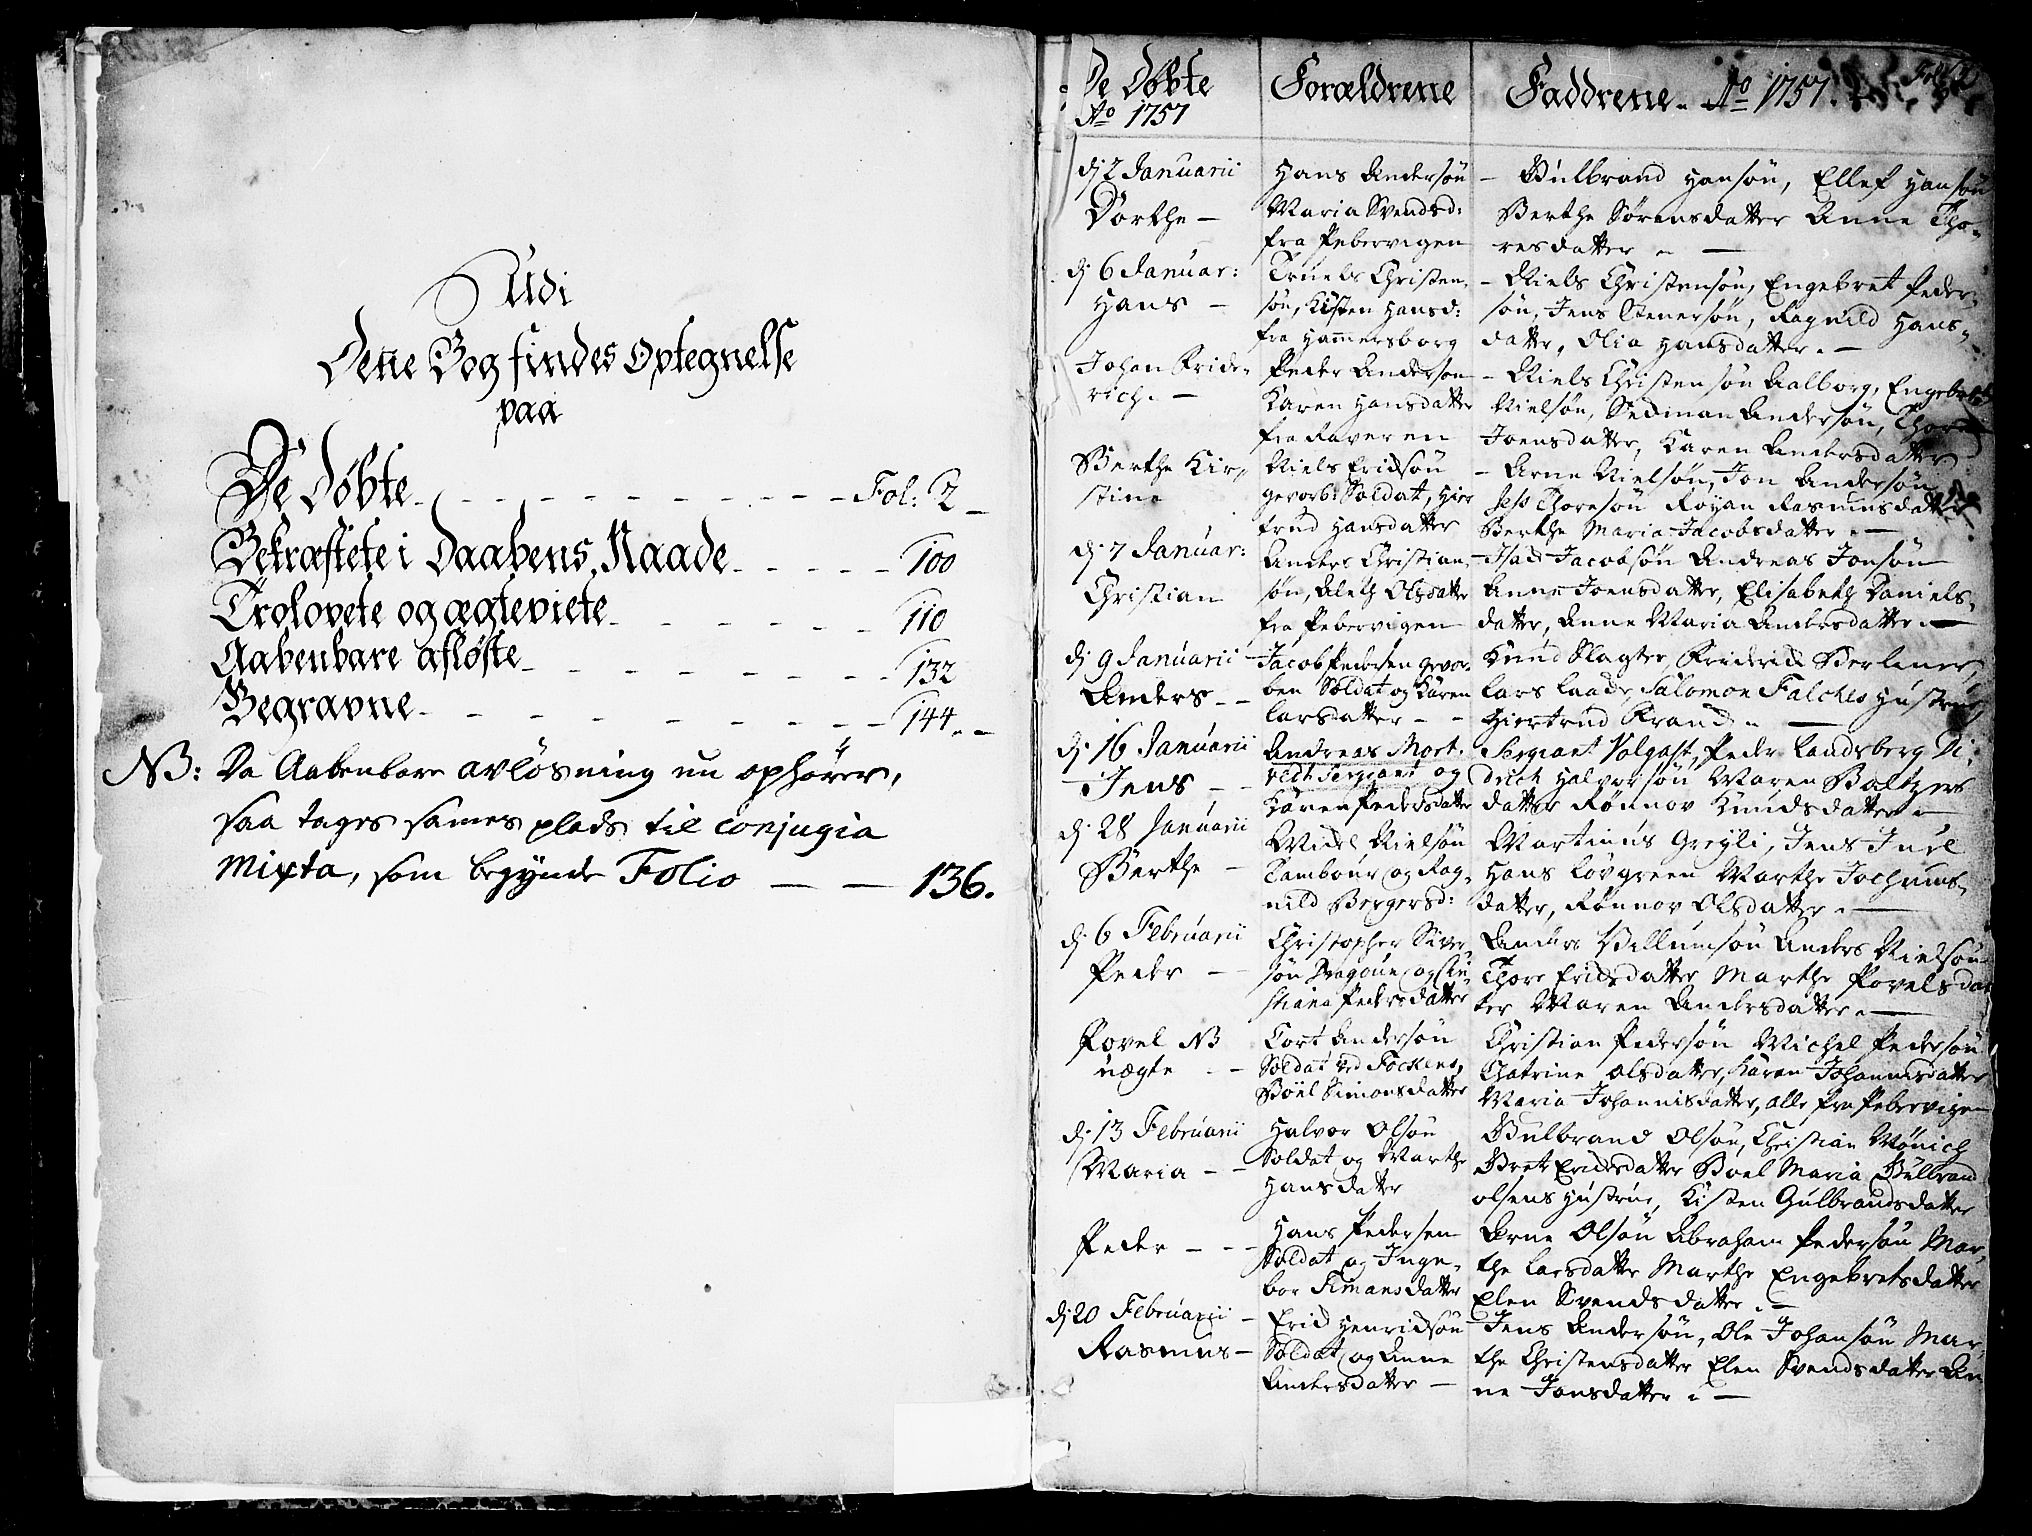 Udi
Denne Bog findes Optegnelse
paa
De Døbte - - - - - - - - - Fol: 2 -
Bekræftete i Daabens Naade - - - - - 100
Trolovete og ægteviete - - - - - - 110
Aabenbare afløste - - - - - - - 132
Begravne - - - - - - - - 144 - -
NB: Da Aabenbare avløsning nu ophører,
saa tages sammes plads til conjugia
mixta, som begynder Folio — — 136.
De Døbte
Ao 1757
Forældrene
Faddrene. Ao 1757.
dj 2 Januarii
Dorthe —
Hans Andersøn
Maria Svendsd:
fra Pebervigen
- Gulbrand Hansøn, Ellef Hansøn
Berthe Sørensdatter Anne Tho-
resdatter. —
dj. 6 Januar:
Hans —
Truels Christen-
søn, Kisten Hansd:
fra Hammersborg
- Niels Christensøn, Engebret Peder-
søn, Jens Stenersøn, Ragnild Hans-
datter, Olia Hansdatter. —
Johan Fride-
rich. —
Peder Anderson
Karen Hansdatter
fra Raveren
- Niels Christensøn Aalborg, Engebret
Nielsøn, Sediman Andersøn, Thore
Joensdatter, Karen Andersdatter
Berthe Kir-
stine
Niels Ericksøn
gevorb: Soldat, Hier
trud Hansdatter
- Arne Nielsøn, Jon Andersøn
Jess Thoresøn Royan Rasmusdatter
Berthe Maria Jacobsdatter. —
dj. 7 Januar:
Christian
Anders Christian-
søn, Aleth Olsdatter
fra Pebervigen
- Isach Jacobsøn Andreas Jonsøn
Anne Joensdatter, Elisabeth Daniels-
datter, Anne Maria Andersdatter. —
dj 9 Januarii -
Anders - -
Jacob Pedersen gevor-
ben Soldat og Karen
Larsdatter - -
Knud Slagter, Friderich Berliner,
Lars Laade, Salomon Falches Hustrue
Giertrud Brand. —
dj. 16 Januarii
Jens - -
Andreas Mort.
vedt Sergiant og
Karen Pedersdatter
Sergiant Volgast, Peder Landsberg Di-
derich Halvorsøn Maren Baltzers
datter Rønnov Knudsdatter. —
dj. 28 Januarii
Berthe -
Mickel Nielsøn
Tambour og Rag-
nild Bergersd:
Martinus Greyli, Jens Juel
Hans Løvgreen Marthe Jochums-
datter, Rønnov Olsdatter. —
dj. 6 Februarii
Peder - -
Christopher Siver
søn Dragoun og Chri
stiana Pedersdatter
Anders Villumsøn Anders Nielsøn
Thore Ericksdatter Marthe Povelsdat
ter Maren Andersdatter. —
Povel NB
uægte - -
Cort Andersøn
Soldat ved Fockens,
Boel Simonsdatter
Christian Pedersøn Michel Pedersøn
Chatrine Olsdatter, Karen Johannisdatter
Maria Johannisdatter, alle fra Pebervigen
dj. 13 Februarii
Maria - -
Halvor Olsøn
Soldat og Marthe
Hansdatter
Gulbrand Olsøn, Christian Mønich
Gret Ericksdatter Boel Maria Gulbrand
Olsens Hustrue, Kisten Gulbrandsdatter
Peder - - -
Hans Pedersen
Soldat og Inge-
bor Timansdatter
Arne Olsøn Abraham Pedersøn Mar-
the Larsdatter Marthe Engebretsdatter
Elen Svendsdatter. —
dj 20 Februarii -
Rasmus —
Erick Henricksøn
Soldat og Anne
Andersdatter —
Jens Andersøn, Ole Johansøn Mar-
the Christensdatter Elen Svendsdatter An-
ne Jonsdatter. —